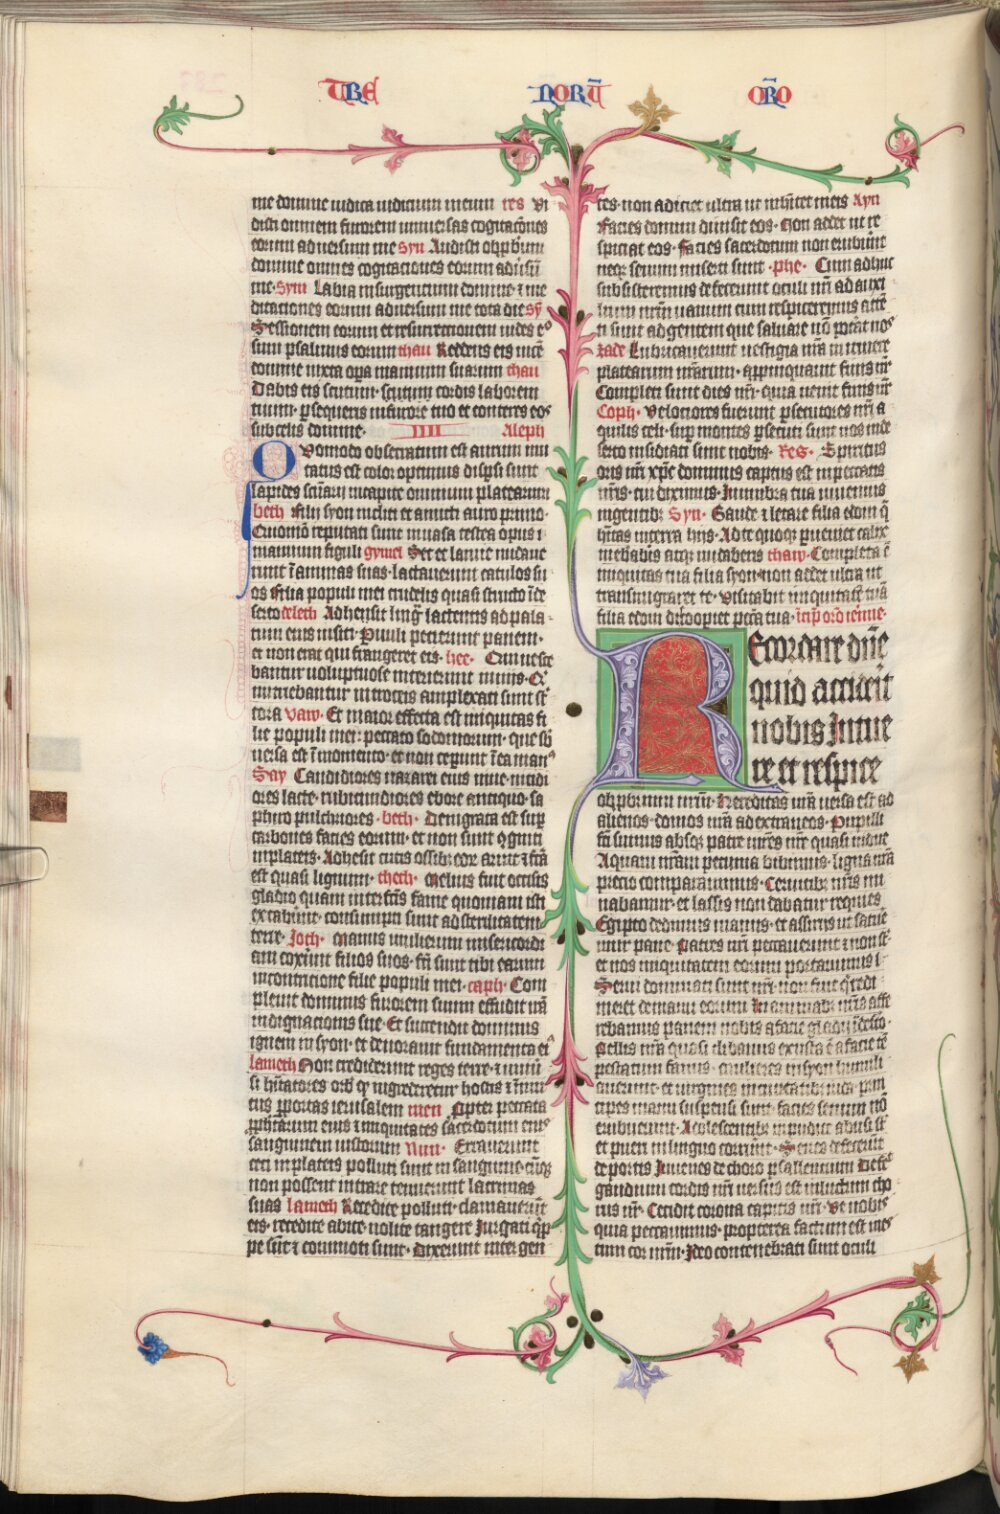 TRE NORŪ ORO
me domine iudica iudicium meum res Vi
disti omnem furorem universas cogitacōnes
eorum adversum me syn Audisti obprobrium
domine omnes cogitaciones eorum adūsū
me · Syn Labia insurgencium domine ⁊ me
ditaciones eorum adversum me tota die sȳ
Sessionem eorum et resurrectionem vides e°
sum psalmus eorum thau Reddens eis vicē
domine iuxta opa manuum suarum thau
Dabis eis scutum · scutum cordis laborem
tuum · psequeris in furore tuo et conteres eos
sub celis domine · IIII Aleph
Quomodo obscuratum est aurum mu
tatus est color optimus dispsi sunt
lapides scūarii in capite omnium platearum
beth filii syon incliti et amicti auro primo ·
Quomō reputati sunt in vasa testea opus
manuum figuli gymel Set et lamie nudave
runt mammas suas · lactaverunt catulos su
os filia populi mei crudelis quasi strucio ī de
serto deleth Adhesit lingᵃ lactentis ad pala
tum eius in siti · Parvuli petierunt panem ·
et non erat qui frangeret eis · hee · Qui vesce
bantur voluptuose interierunt in viis · Qͥ
nutriebantur in croceis amplexati sunt st
cora vaw · Et maior effecta est iniquitas fi
lie populi mei · peccato sodomorum · que sb
versa est ī momento · et non ceperunt ī ea man°
Say Candidiores nazarei eius nive · nitidi
ores lacte · rubicundiores ebore antiquo · sa
phiro pulchriores · heth · Denigrata est sup
carbones facies eorum · et non sunt cogniti
in plateis · Adhesit cutis ossibus eor aruit ⁊ fcā
est quasi lignum · theth · Melius fuit occisis
gladio quam interfcīs fame quoniam isti
extabuerunt · consumpti sunt ad sterilitatem
terre · Joth · Manus mulierum misericordi
am coxerunt filios suos · fcī sunt cibi earum
in contricione filie populi mei · caph · Com
plevit dominus furorem suum effudit irā
indignacionis sue · Et succendit dominus
ignem in syon · et devoravit fundamenta ei°
lameth Non crediderunt reges terre · ⁊ univū
si hītatores orb qr ingrederetur hostis ⁊ inim
cus p portas ierusalem men Propter peccata
pphetarum eius ⁊ iniquitates sacerdotum eius
sanguinem iustorum Nun · Erraverunt
ceci in plateis polluti sunt in sanguine · cūqe
non possent intrare tenuerunt lacinias
suas lameth Recedite polluti · clamaverūt
eis · recedite abite · nolite tangere Jurgati qp
pe sūt ⁊ commoti sunt · dixerunt inter gen
tes · non adiciet ultra ut inhītet in eis Ayn
Facies domini divisit eos · Non addet ut re
spiciat eos · Facies sacerdotum non erubūnt
neqe senum miserti sunt · phe · Cum adhuc
subsisteremus defecerunt oculi nrī ad auxi
lium nrm vanum cum respiceremus attē
ti sunt ad gentem que salvare nō potāt nos
zade Lubricaverunt vestigia nrā in itinere
platearum nrarum · appinquavit finis nr
Completi sunt dies nrī · quia venit finis nr
Coph · Velociores fuerunt psecutores nrī a
quilis celi · sup montes psecuti sunt nos in de
serto insidiati sunt nobis · Res · Spiritus
oris nrī xpc dominus captus est in peccatis
nris · cui diximus · In umbra tua vivemus
in gentib; Syn · Gaude ⁊ letare filia edom q̄
hītas in terra hus · Ad te quoqe pveniet calix
inebriabis atqe nudaberis thaw · Completa ē
iniquitas tua filia syon · non addet ultra ut
transmigraret te · visitabit iniquitatē tuā
filia edom discooperiet pctā tua · incip oro ieremie ·
Recordare dne
quid acciderit
nobis Intue
re et respice
obprobrium nrum · Hereditas nrā versa est ad
alienos · domos nrā ad extraneos · Pupilli
fcī sumus absqe patre mres nre quasi vidue
Aquam nram pecunia bibimus · ligna nrā
precio comparavimus · Cervicib; nris mi
nabamur · et lassis non dabatur requies
Egipto dedimus manus · et assyriis ut satue
mur pane · Patres nrī peccaverunt ⁊ non st ·
et nos iniquitatem eorum portavimus ·
Servi dominati sunt nrī · non fuit q redi
meret de manu eorum In animab; nris affe
rebamus panem nobis a facie gladii ī deserto ·
Pellis nrā quasi clibanus exusta ē a facie tē
pestatum famis · mulieres in syon humili
averunt · et virgines in civitatibus iuda · prin
cipes manu suspensi sunt · facies senum nō
erubuerunt · Adolescentib; inpudice abusi st
et pueri in ligno corruūt · Senes defecerūt
de portis Juvenes de choro psallencium Defec
gaudium cordis nrī versus est in luctum cho
rus nr · Cecidit corona capitis nrī · Ve nobis
quia peccavimus · propterea factum est mes
tum cor nrm · Ideo contenebrati sunt oculi